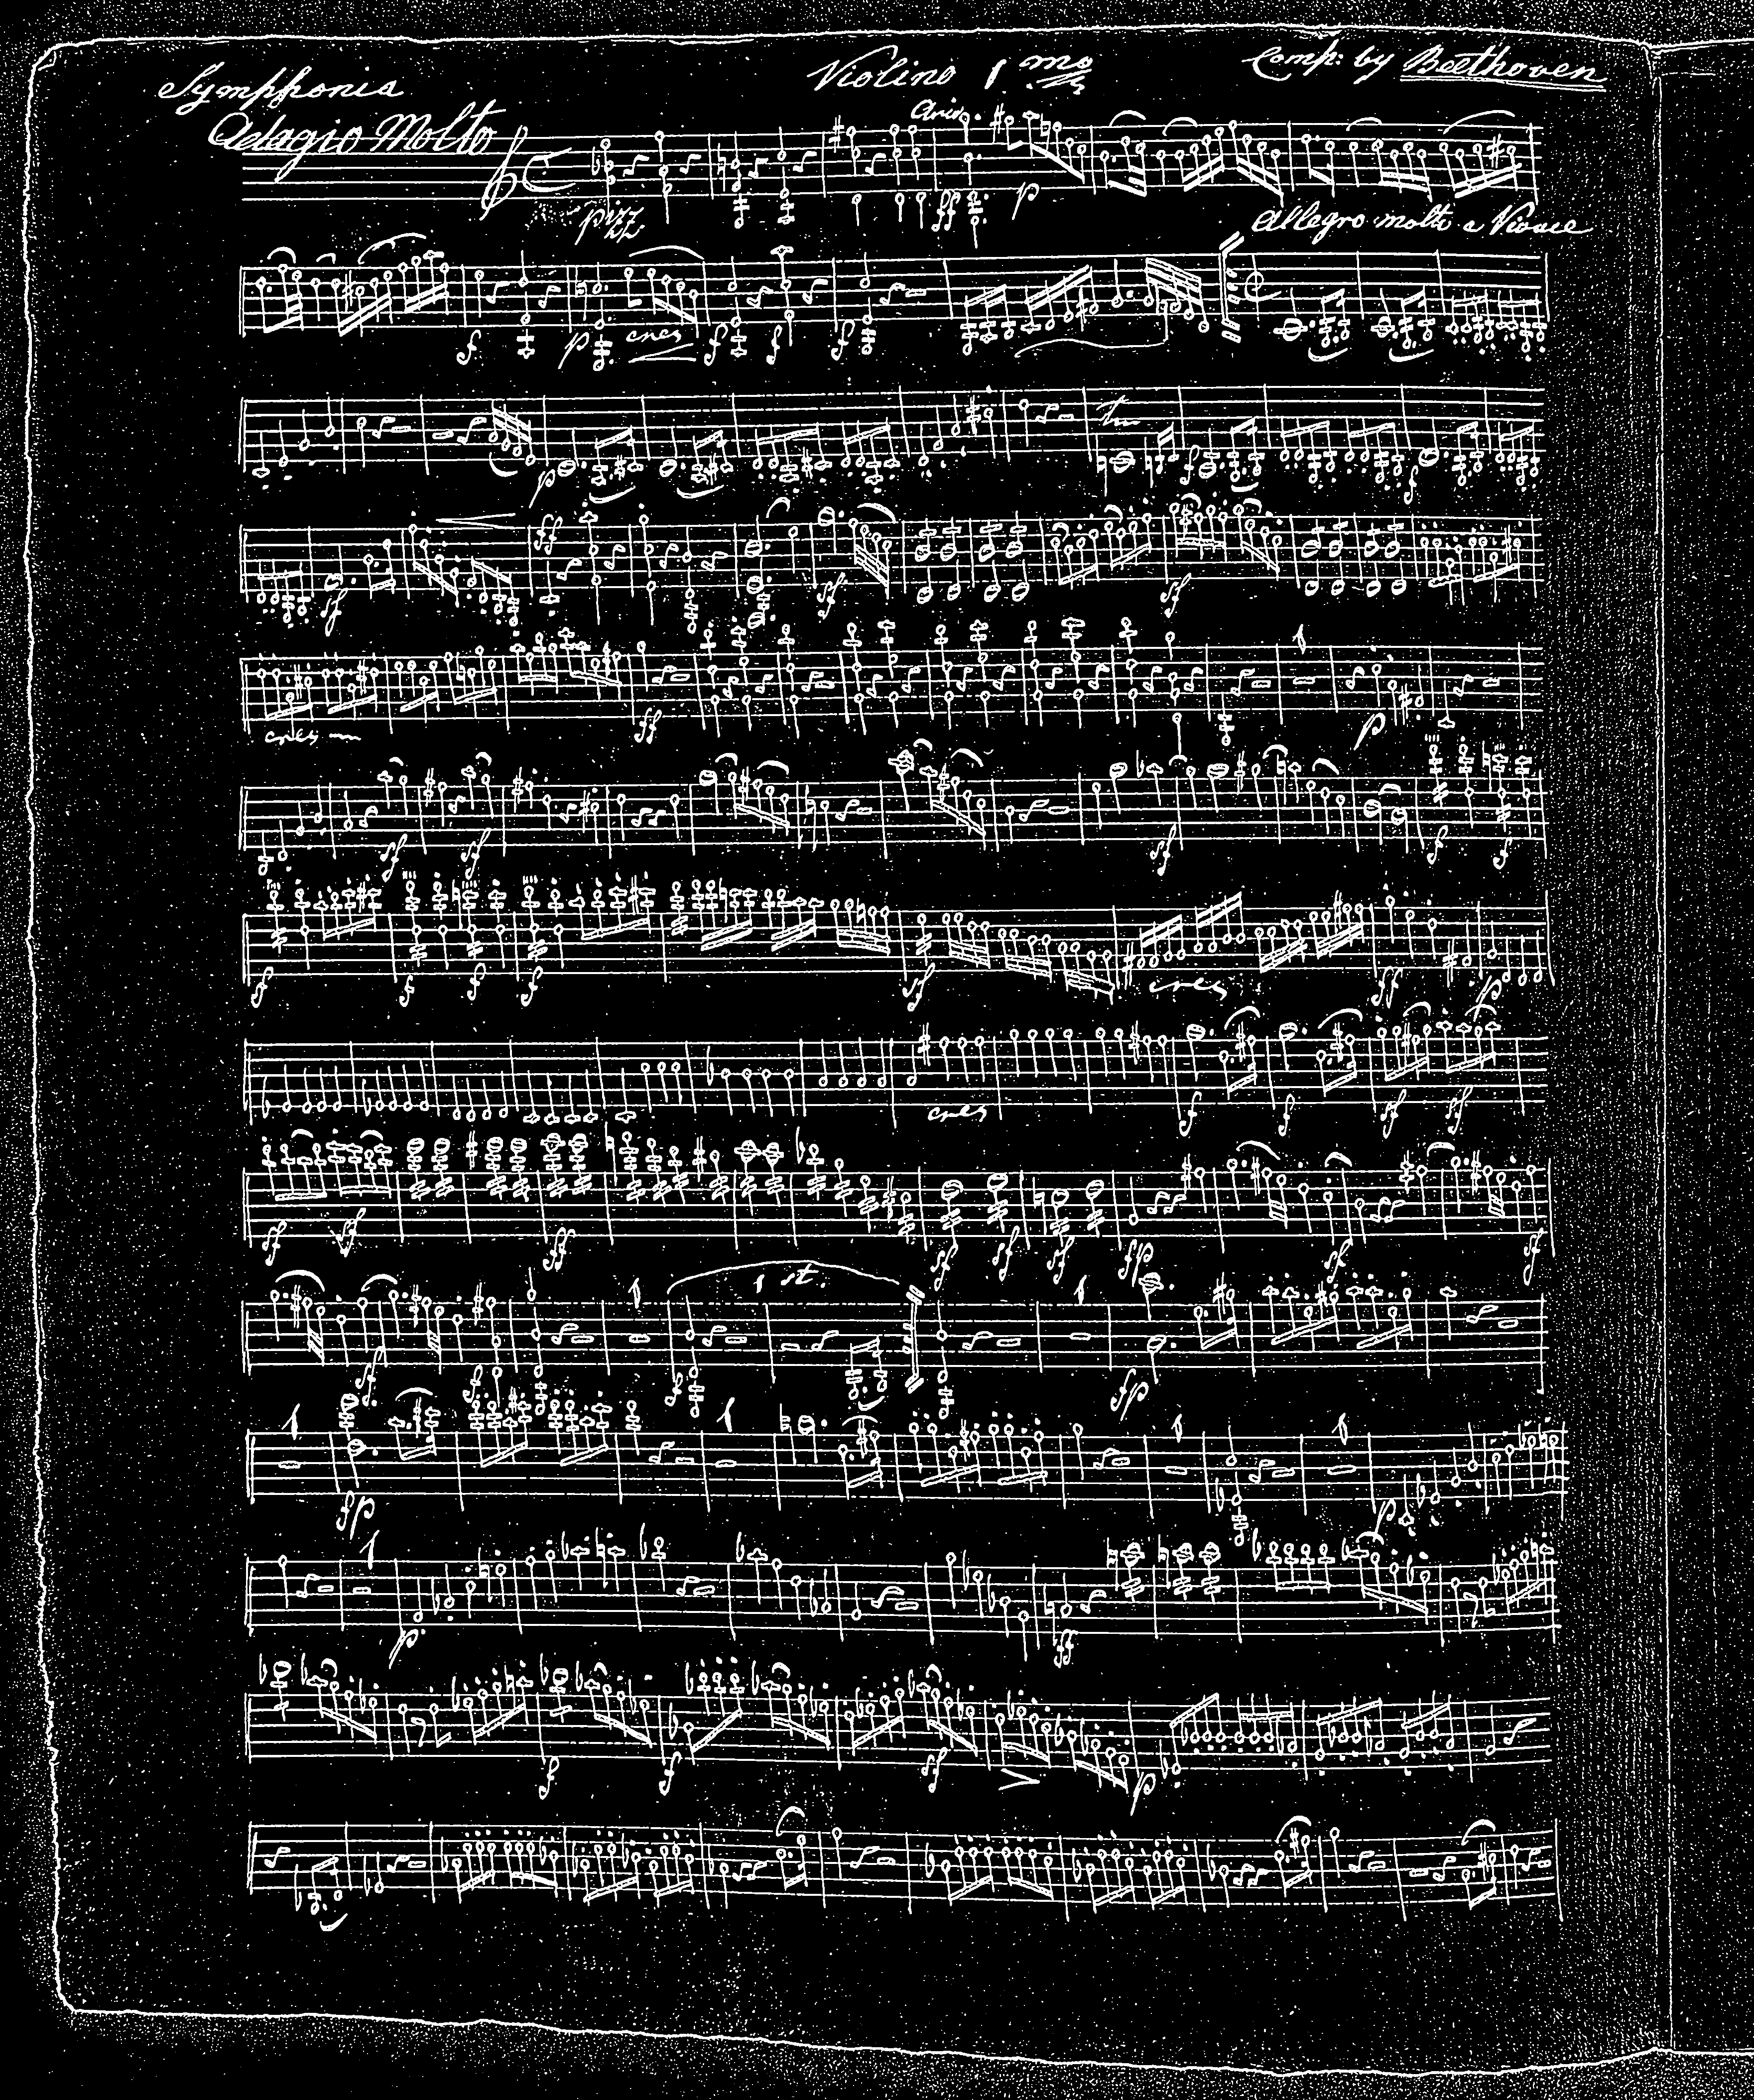 Symphonia Violino 1mo Comp: by Beethoven
Adagio Molto
arco
pizz ff p
Allegro molto e Vivace
f p cres f f f
p f f
sf ff sf sf
cres ff p
sf sf sf f f
f f f f sf cres ff p
cres f f sf sf
sf sf ff sf sf sf fp sf sf
1 st.
sf sf sf fp
fp p
p ff
f f sf p